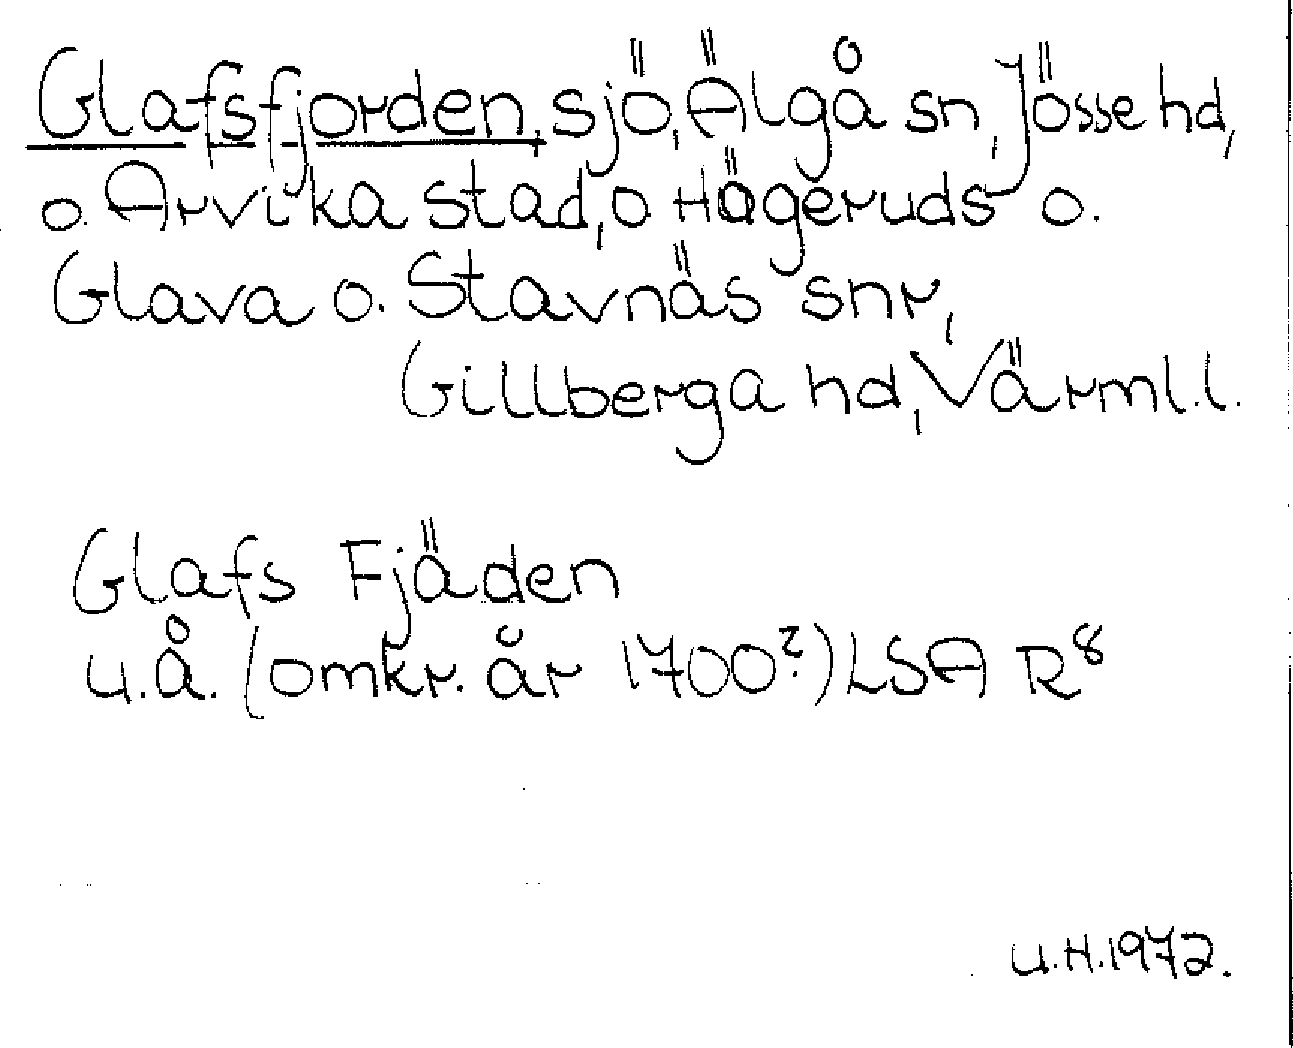 Glafsfjorden, sjö, Älgå sn, Jösse hd,
o. Arvika stad, o. Högeruds o.
Glava o. Stavnäs snr,
Gillberga hd, Värml.l.
Glafs Fjäden
u.å. (omkr. år 1700?) LSA R8
U.H. 1972.